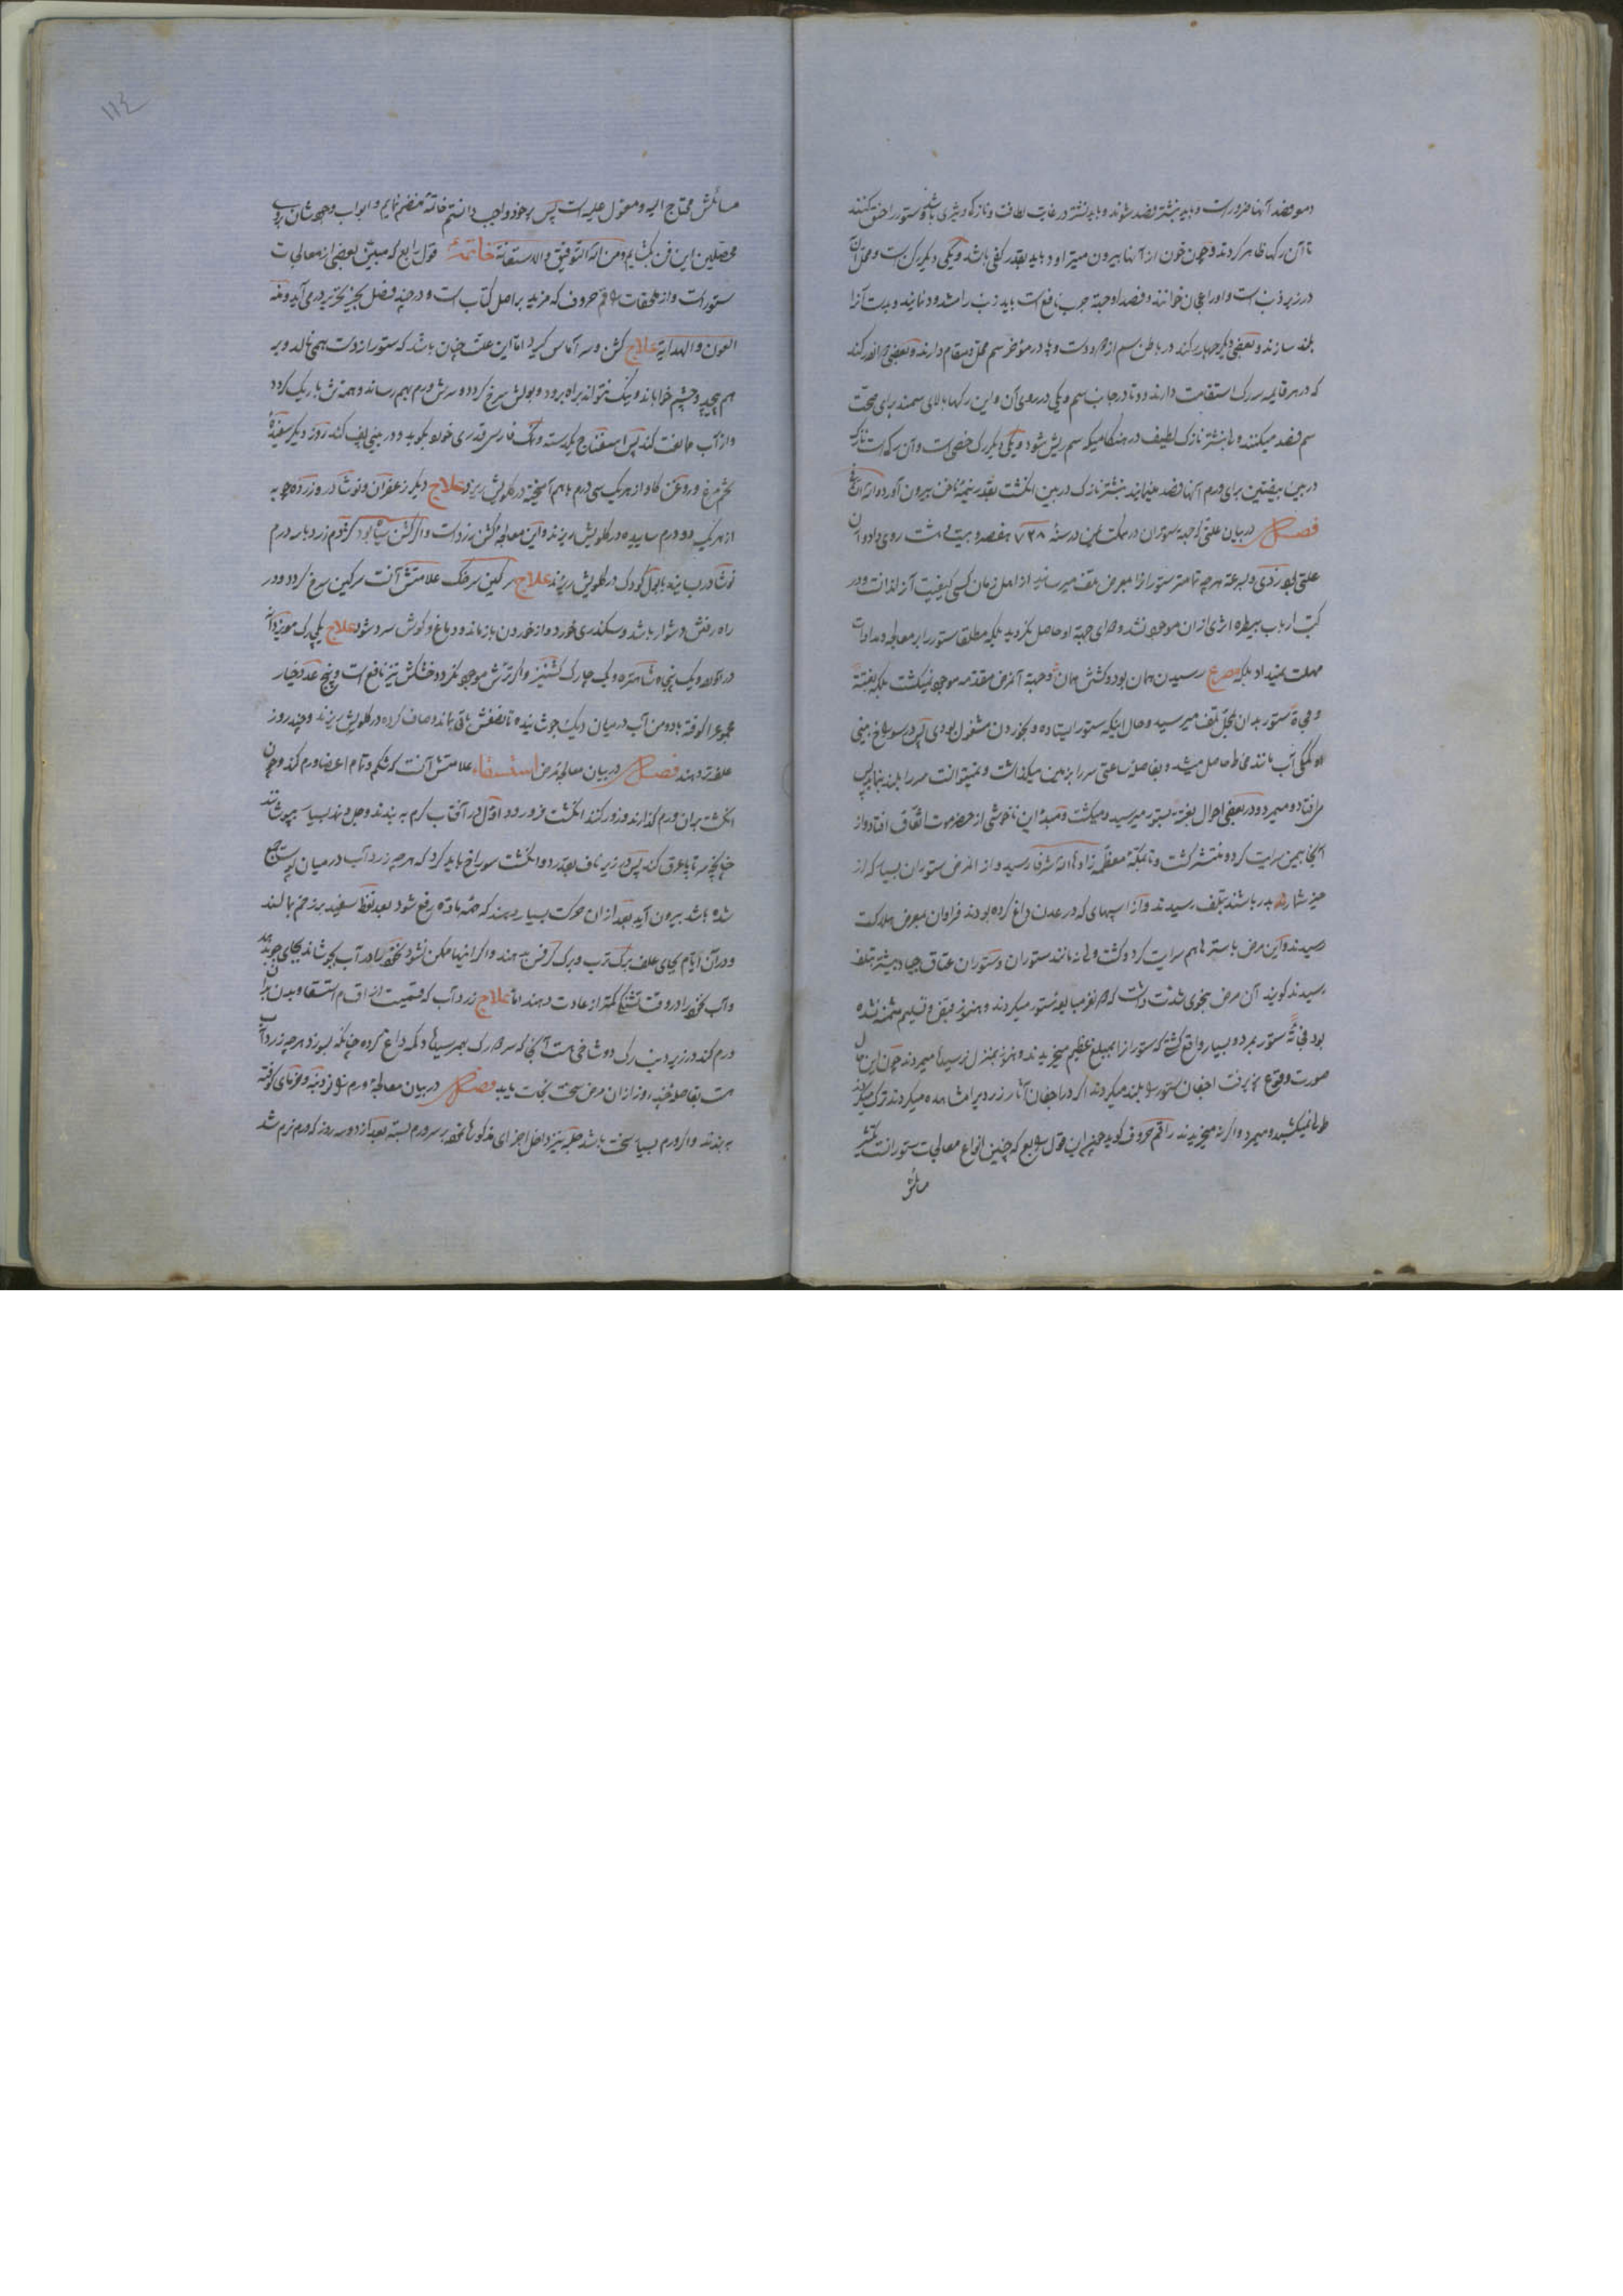 دمو فصد آنها ضرورات و باید بنشتر فصد شوند و باید نشتر در غایت لطافت و نازکی و تیزی باشد و ستور را خنق کنند
تا آن رکها ظاهر کردند و چون خون از آنها بیرون میتراود باید بقدر کفی باشد و یکی دیکر رک است و محل آن
در زیر ذنب است و او را عجان خوانند و فصد او جهة جرب نافع است باید ذنب را مشدود نمایند و پوست آنرا
بلند سازند و بعضی دیکر چهار رکند در باطن سم از دو دست و پا در مؤخر سم محل و مقام دارند و بعضی دیکر
که در هر قایمه سه رک استقامت دارند دو تا در جانب سم و یکی در روی آن و این رکها بالای سمند برای صحت
سم فصد میکنند و با نشتر نازک لطیف در هنکامیکه سم ریش شود و یکی دیکر رک خصی است و آن رک است نازک
در بین بیضتین برای ورم آنها فصد مینمایند بنشتر نازک در بین انکشت بقدر نیمه ناخن بیرون آورده
فصل در بیان علتی که جهة ستوران در مملکت یمن در سنهٔ ۷۲۸ هفتصد و بیست و هشت روی داد و آن
علتی بود ردی و بسرعة هر چه تمامتر ستور را در معرض تلف میرسانید از اهل زمان کسی کیفیت آنرا ندانست و در
کتب ارباب بیطره اثری از آن موجود نشد و دوای جهة او حاصل نکردید بلکه مطلقا ستور را بر معالجه و مداوات
مهلت نمیداد بلکه مصرع رسیدن همان بود و کشتن همان و جهة آنمرض مقدمه موجود نمیکشت بلکه بغتة
و فجاة ستور بدان بمحل تلف میرسید و حال اینکه ستور ایستاده و بخوردن مشغول بودی پس در سوراخ بینی
او کمکی آب مانند مخاط حاصل میشد و بفاصلهٔ ساعتی سر را بزمین میکذاشت و نمیتوانست سر را بلند نماید پس
می افتاد و میمرد و در بعضی احوال بغتة بستور میرسید و میکشت و مبدأ این ناخوشی از حضرموت اتفاق افتاد و از
آنجا بیمن سرایت کرد و منتشر کشت و تا بمکهٔ معظمه زادها الله شرفا رسید و از آنمرض ستوران بسیار که از
حیز شماره بدر باشند بتلف رسیدند و از اسپهای که در عدن داغ کرده بودند فراوان بمعرض هلاکت
رسیدند و این مرض باسترها هم سرایت کرد و کشت ولی نه مانند ستوران و ستوران عتاق جیاد بیشتر بتلف
رسیدند کویند آن مرض بنحوی شدت داشت که دو نفر مبایعه ستور میکردند و هنوز قبض و تسلیم مثمنه نشده
بود فجاة ستور بمرد و بسیار واقع کشته که ستور را بمبلغ عظیم میخریدند و هنوز بمنزل نرسیده میمردند چون این حال
صورت وقوع پذیرفت اجفان ستور را بلند میکردند اکر در اجفان آثار زردی را مشاهده میکردند ترک میکردند
طولی نمیکشید و میمرد و اکر نه میخریدند راقم حروف کوید چون این قول رابع که چنین انواع معالجات ستور است بیشتر
مسائلش
۱۱۴
مسائلش محتاج الیه و معول علیه است پس بر خود واجب دانستم خاتمهٔ منضم نمایم و ابواب وجوه شان بروی
محصلین این فن بکشایم و من الله التوفیق و الاستعانة خاتمة قول رابع که مبین بعضی از معالجات
ستورات و از ملحقات راقم حروف که مزید بر اصل کتاب است و در چند فصل بحیز تحریر در می آید و منه
العون و الهدایة علاج کشن و سر آماس کیرد اما این علت چنان باشد که ستور از دست همی نالد و بر
هم پیچد و چشم خواباند و نیک نتواند براه برود و بولش سرخ کردد و سرش ورم بهم رساند و همه تن باریک کردد
و از آب مخالفت کند پس اسفناج یکدسته و نمک فارس قدری خوب بکوبد و در بینی پف کند روز دیکر سفیدهٔ
تخم مرغ و روغن کاو از هر یک سی درم با هم آمیخته در کلویش ریزد علاج دیکر زعفران و نوشادر و زردچوبه
از هر یک دو درم ساییده در کلویش ریزند و این معالجهٔ کشن زرد است و اکر کشن سیاه بود کژدم زرد با سه درم
نوشادر ساییده با بول کودک در کلویش ریزند علاج سرکین سرخک علامتش آنست سرکین سرخ کردد و در
راه رفتن دشوار باشد و سکندری خورد و از خوردن باز ماند و دماغ و کوش سرد شود علاج
در آلو و یک پنجه شاهتره و یک چارک کشنیز و اکر ترش موجود نکردد خشکش نیز نافع است و پنج عدد خیار
مجموع را کوفته با دو من آب در میان دیک جوشانیده تا نصفش باقی بماند و صاف کرده در کلویش ریزند و چند روز
علف تر دهند فصل در بیان معالجهٔ مرض استسقاء علامتش آنست که شکم و تمام اعضا ورم کند و چون
انکشت بران ورم کذارند و زور کنند انکشت فرو رود اول در آفتاب کرم به بندند و جل و نمد بسیار بپوشانند
چنانچه سر تا پا عرق کند پس در زیر ناف بقدر دو انکشت سوراخ باید کرد که هر چه زرد آب در میان پوست جمع
شده باشد بیرون آید بعد از آن حرکت بسیار دهند که تتمه ماده رفع شود بعد نفط سفید بر زخم بمالند
و در آن ایام بجای علف برک ترب و برک کرفس بدهند و اکر اینها ممکن نشود نخود را در آب بجوشانند بجای جو بدهند
و آب نخود را در وقت تشنکی کمتر از عادت دهند اما علاج زرد آب که قسمیست از اقسام استسقا و بدن را
ورم کند در زیر دنب رک دو شاخی است آنجا که سر دو رک بهم رسید با دکمه داغ کرده چنانکه بسوزد هر چه زرد آب
است بفاصلهٔ چند روز از آن مرض سخت نجات یابد فصل در بیان معالجهٔ ورم زانو دنبه و خرمای کوفته
به بندند و اکر ورم بسیار سخت باشد حلبه نیز داخل اجزای مذکوره نموده بر سر ورم بسته بعد از دو سه روز که ورم نرم شد